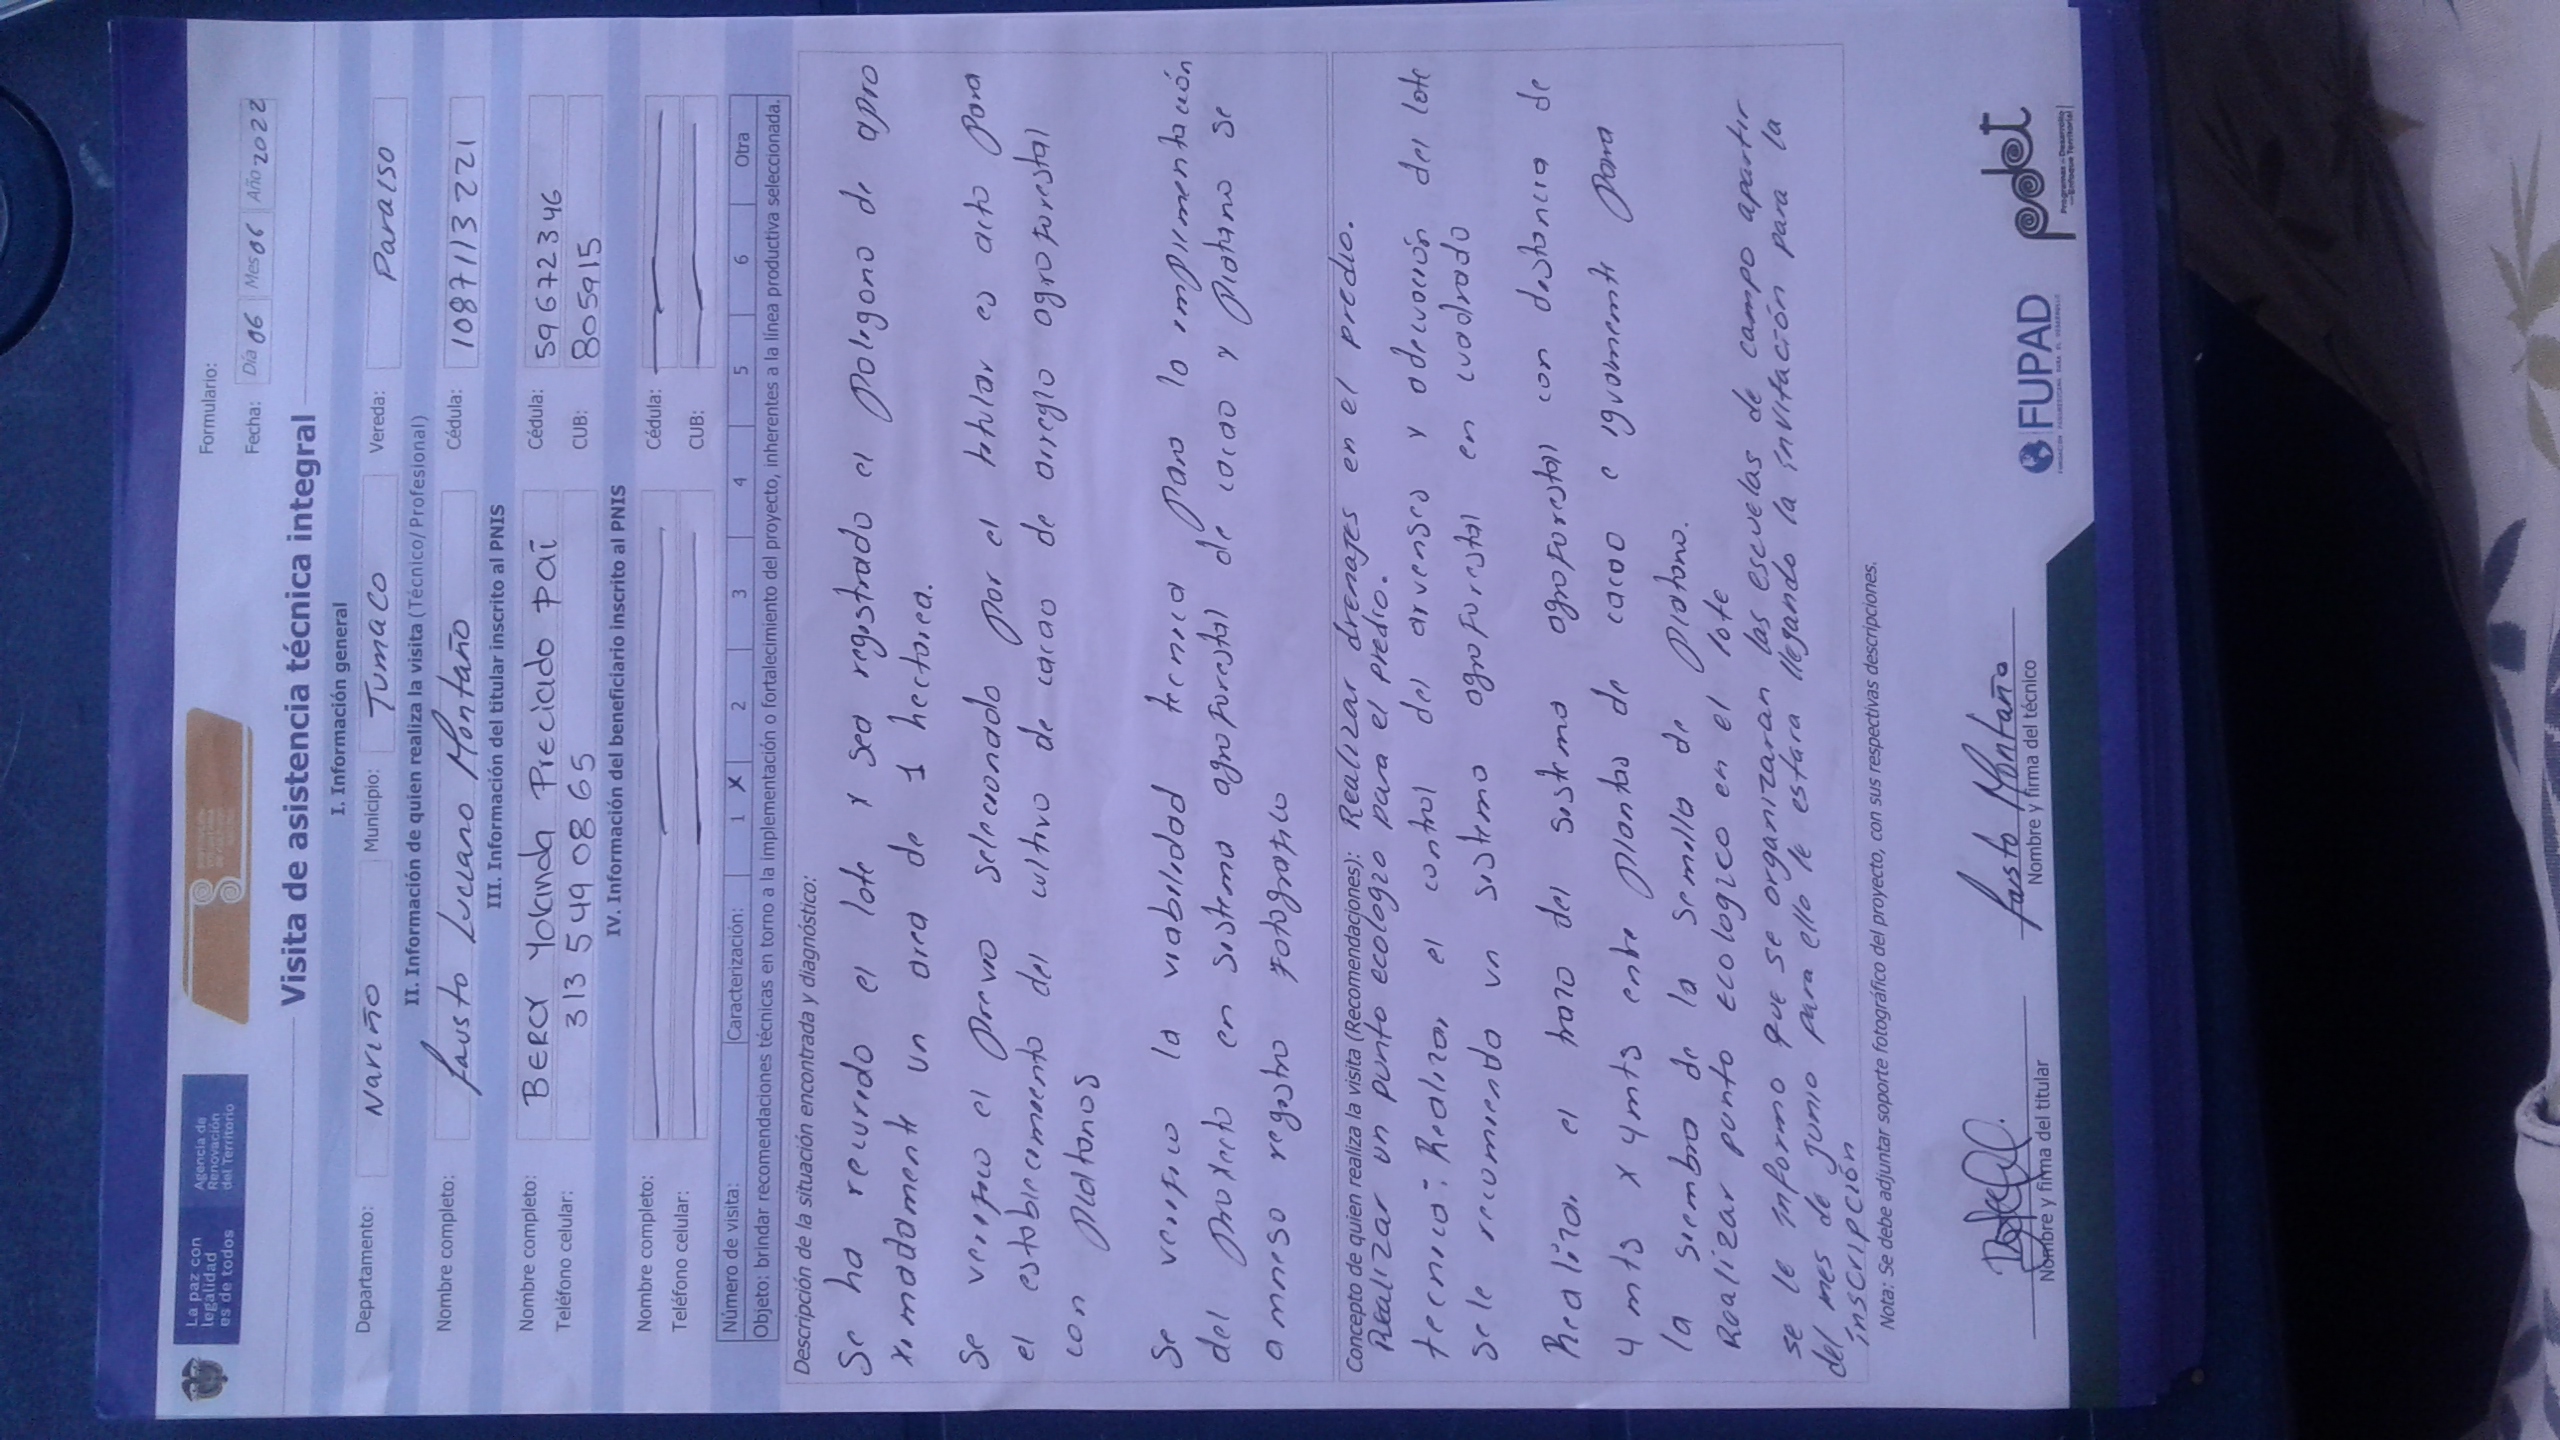 La paz con
legalidad
es de todos
Agencia de
Renovación
del Territorio
Formulario:
Fecha: Día 06 Mes 06 Año 2022
Visita de asistencia técnica integral
I. Información general
Departamento: Nariño Municipio: Tumaco Vereda: Paraiso
II. Información de quien realiza la visita (Técnico/Profesional)
Nombre completo: Fausto Luciano Montaño Cédula: 1087113221
III. Información del titular inscrito al PNIS
Nombre completo: BERCY Yolanda Preciado Pai Cédula: 59672346
Teléfono celular: 313 549 08 65 CUB: 805915
IV. Información del beneficiario inscrito al PNIS
Nombre completo: Cédula:
Teléfono celular: CUB:
Número de visita: Caracterización: 1 X 2 3 4 5 6 Otra
Objeto: brindar recomendaciones técnicas en torno a la implementación o fortalecimiento del proyecto, inherentes a la línea productiva seleccionada.
Descripción de la situación encontrada y diagnóstico:
Se ha recurrido el lote y sea registrado el poligono de apro
ximadamente un area de 1 hectarea.
Se verifico el previo seleccionado por el titular es acto para
el establecimiento del cultivo de cacao de arreglo agroforestal
con platanos
Se verifico la viabilidad tecnica para la implementación
del proyecto en sistema agroforestal de cacao y platano se
anexo registro fotografico
Concepto de quien realiza la visita (Recomendaciones): Realizar drenajes en el predio.
Realizar un punto ecologro para el predio.
tecnico: Realizar el control del arvenses y adecuación del lote
se le recomienda un sistema agroforestal en cuadrado
Realizar el trazo del sistema agroforestal con distancia de
4 mts x 4 mts entre plantas de cacao e igualmente para
la siembra de la semilla de platano.
Realizar punto ecologico en el lote
se le informo que se organizaran las escuelas de campo apartir
del mes de junio para ello le estara llegando la invitación para la
inscripción
Nota: Se debe adjuntar soporte fotográfico del proyecto, con sus respectivas descripciones.
Fausto Montaño
Nombre y firma del titular
Nombre y firma del técnico
FUPAD
pdet
Programas de Desarrollo
con Enfoque Territorial